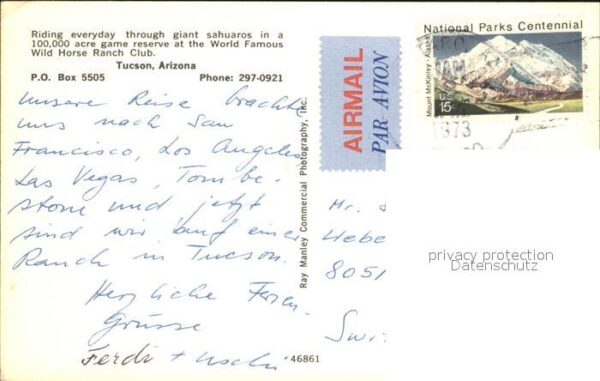 Riding everyday through giant sahuaros in a
100,000 acre game reserve at the World Famous
Wild Horse Ranch Club.
Tucson, Arizona
P.O. Box 5505 Phone: 297-0921
unsere Reise brachte
uns nach San
Francisco, Los Angeles
Las Vegas, Tombe-
stone und jetzt
sind wir auf einer
Ranch in Tucson.
Herzliche Ferien
Grüsse
Ferdi + Uschi
46861
Ray Manley Commercial Photography, Inc.
AIRMAIL
PAR AVION
National Parks Centennial
Mount McKinley - Alaska
U.S.
15c
1973
Mr.
8051
privacy protection
Datenschutz